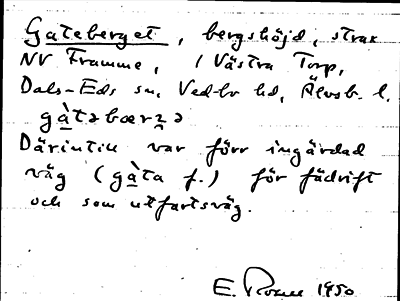 Gateberget, bergshöjd, strax
NV Framme, i Västra Torp,
Dals-Eds sn, Vedbo hd, Älvsb. l.
gàtəbærʒə
Därintill var förr ingärdad
väg (gàta f.) för fädrift
och som utfartsväg.
E. 1950